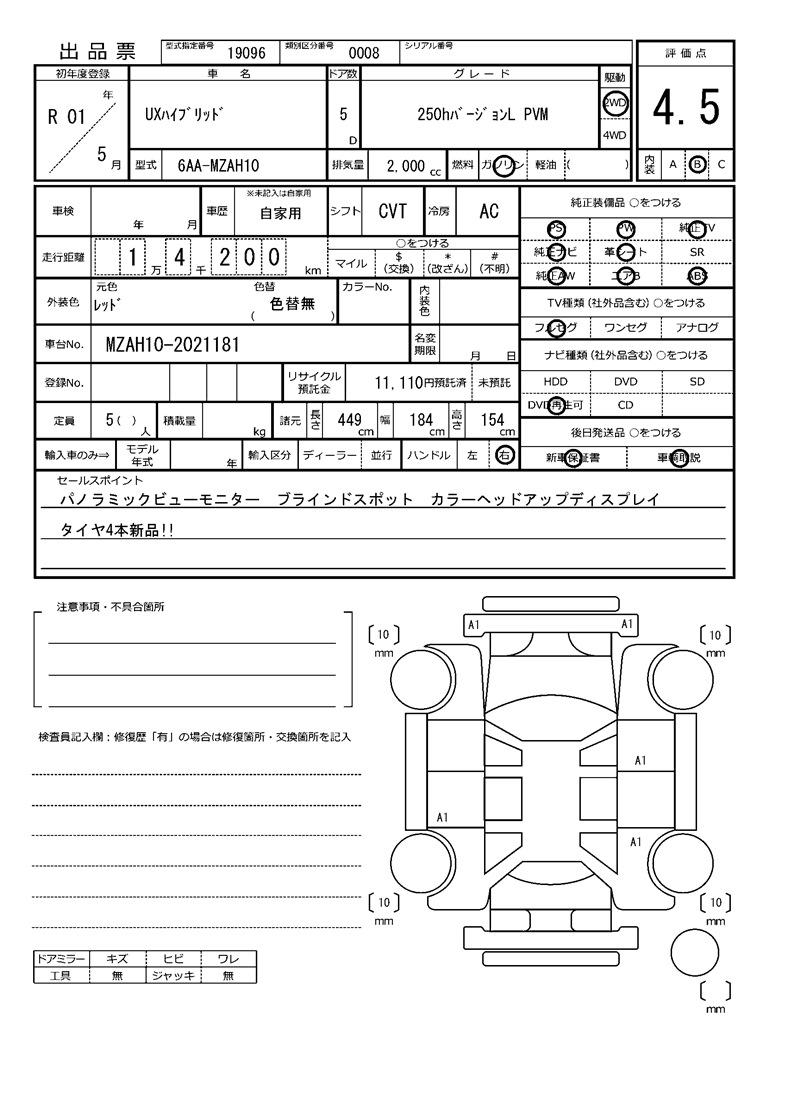 出品票 型式指定番号 19096 類別区分番号 0008 シリアル番号
評価点
初年度登録 車名 ドア数 グレード 駆動
R 01 年 5 月 UXﾊｲﾌﾞﾘｯﾄﾞ 5 D 250hﾊﾞｰｼﾞｮﾝL PVM 2WD 4WD
4.5
型式 6AA-MZAH10 排気量 2,000 cc 燃料 ガソリン 軽油 ( )
内装 A B C
車検 年 月 車歴 ※未記入は自家用 自家用 シフト CVT 冷房 AC
走行距離 1 万 4 千 2 0 0 km
○をつける
マイル $(交換) *(改ざん) #(不明)
外装色 元色 ﾚｯﾄﾞ 色替 色替無 ( ) カラーNo. 内装色
車台No. MZAH10-2021181 名変期限 月 日
登録No. リサイクル預託金 11,110円預託済 未預託
定員 5( )人 積載量 kg 諸元 長さ 449 cm 幅 184 cm 高さ 154 cm
輸入車のみ⇒ モデル年式 年 輸入区分 ディーラー 並行 ハンドル 左 右
純正装備品 ○をつける
PS PW 純正TV
純正ナビ 革シート SR
純正AW エアB ABS
TV種類(社外品含む)○をつける
フルセグ ワンセグ アナログ
ナビ種類(社外品含む)○をつける
HDD DVD SD
DVD再生可 CD
後日発送品 ○をつける
新車保証書 車輌取説
セールスポイント
パノラミックビューモニター ブラインドスポット カラーヘッドアップディスプレイ
タイヤ4本新品!!
注意事項・不具合箇所
検査員記入欄:修復歴「有」の場合は修復箇所・交換箇所を記入
ドアミラー キズ ヒビ ワレ
工具 無 ジャッキ 無
A1 A1
[10] mm [10] mm
A1
A1
A1
[10] mm [10] mm
[ ] mm